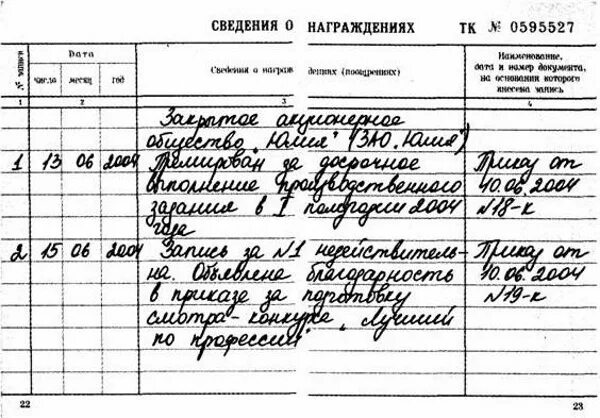 СВЕДЕНИЯ О НАГРАЖДЕНИЯХ ТК № 0595527
№ записи
Дата
число месяц год
Сведения о награждениях (поощрениях)
Наименование,
дата и номер документа,
на основании которого
внесена запись
1 2 3 4
Закрытое акционерное
общество „Юлия" (ЗАО „Юлия")
1 13 06 2004 Премирован за досрочное Приказ от
выполнение производственного 10.06.2004
задания в I полугодии 2004 №18-к
года
2 15 06 2004 Запись за №1 недействитель- Приказ от
на. Объявлена благодарность 10.06.2004
в приказе за подготовку №19-к
смотра-конкурса „Лучший
по профессии"
22 23